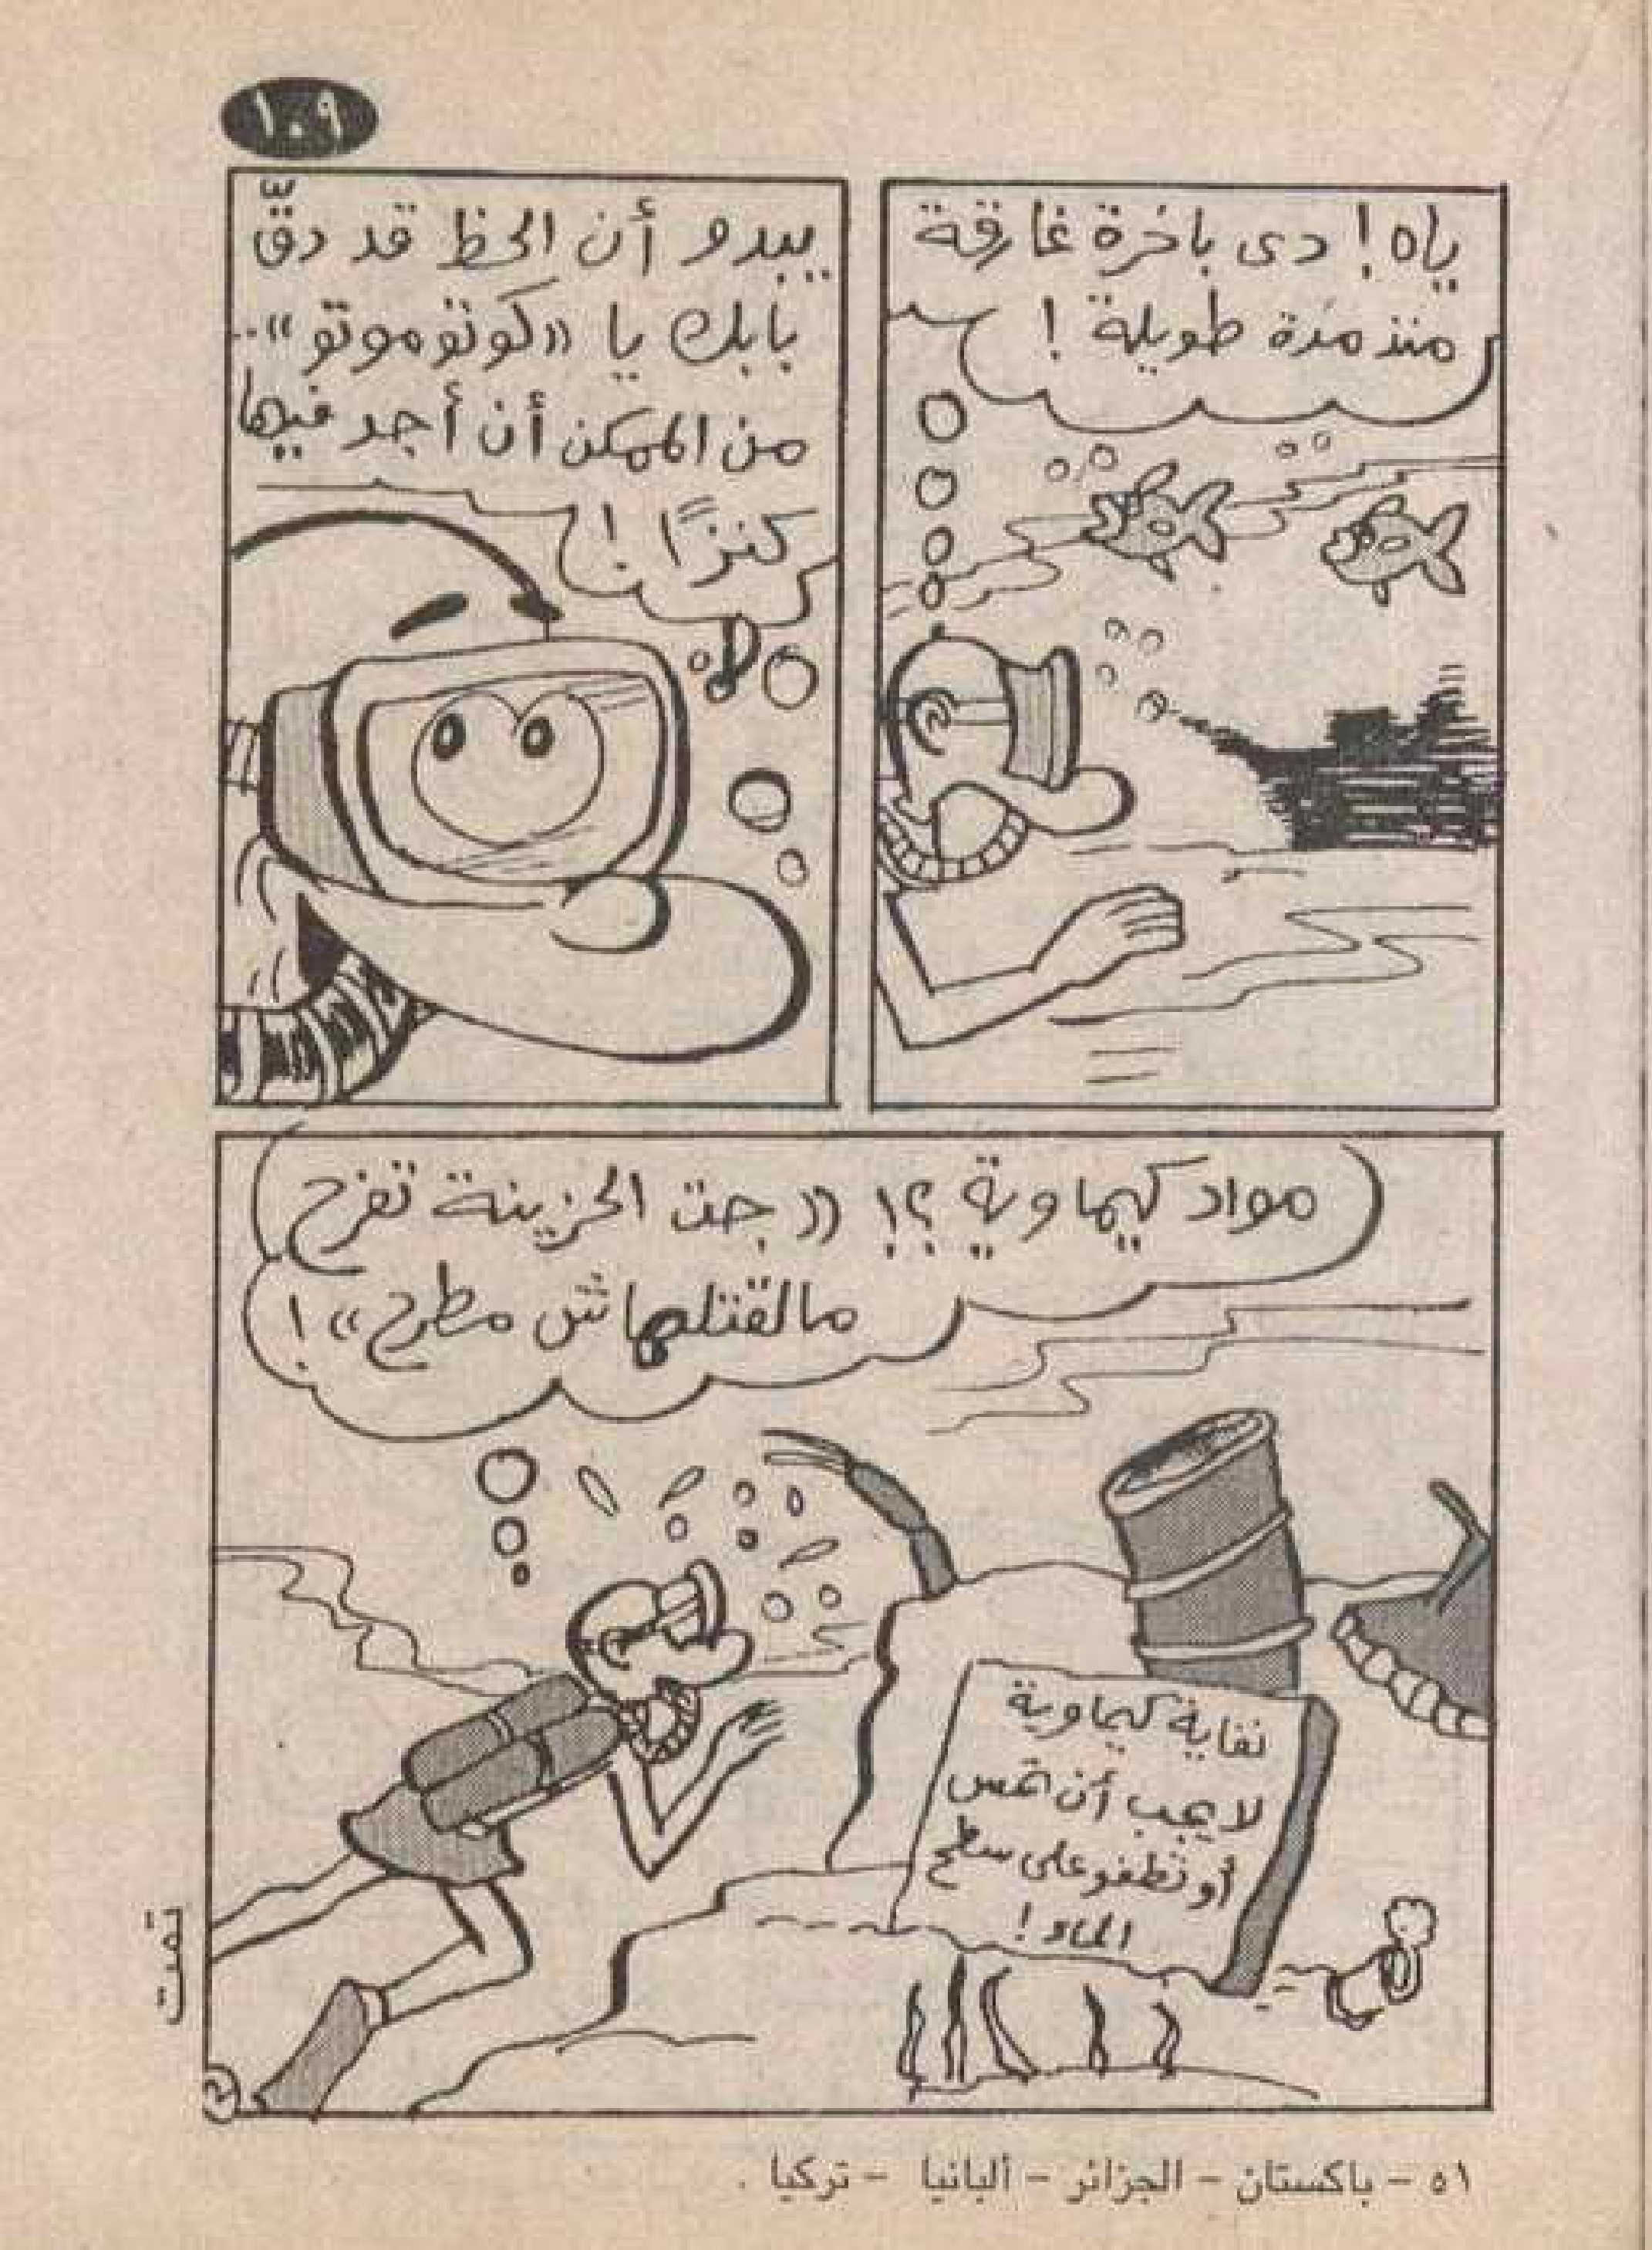 ١٠٩
ياه! دى باخرة غارقة
منذ مدة طويلة!
يبدو أن الحظ قد دقّ
بابك يا «كوتوموتو»..
من الممكن أن أجد فيها
كنزًا!
مواد كيماوية؟! «جت الحزينة تفرح
مالقتلهاش مطرح»!
نفاية كيماوية
لا يجب أن تمس
أو تطفو على سطح
الماء!
تمت
٢
٥١ - باكستان - الجزائر - ألبانيا - تركيا .